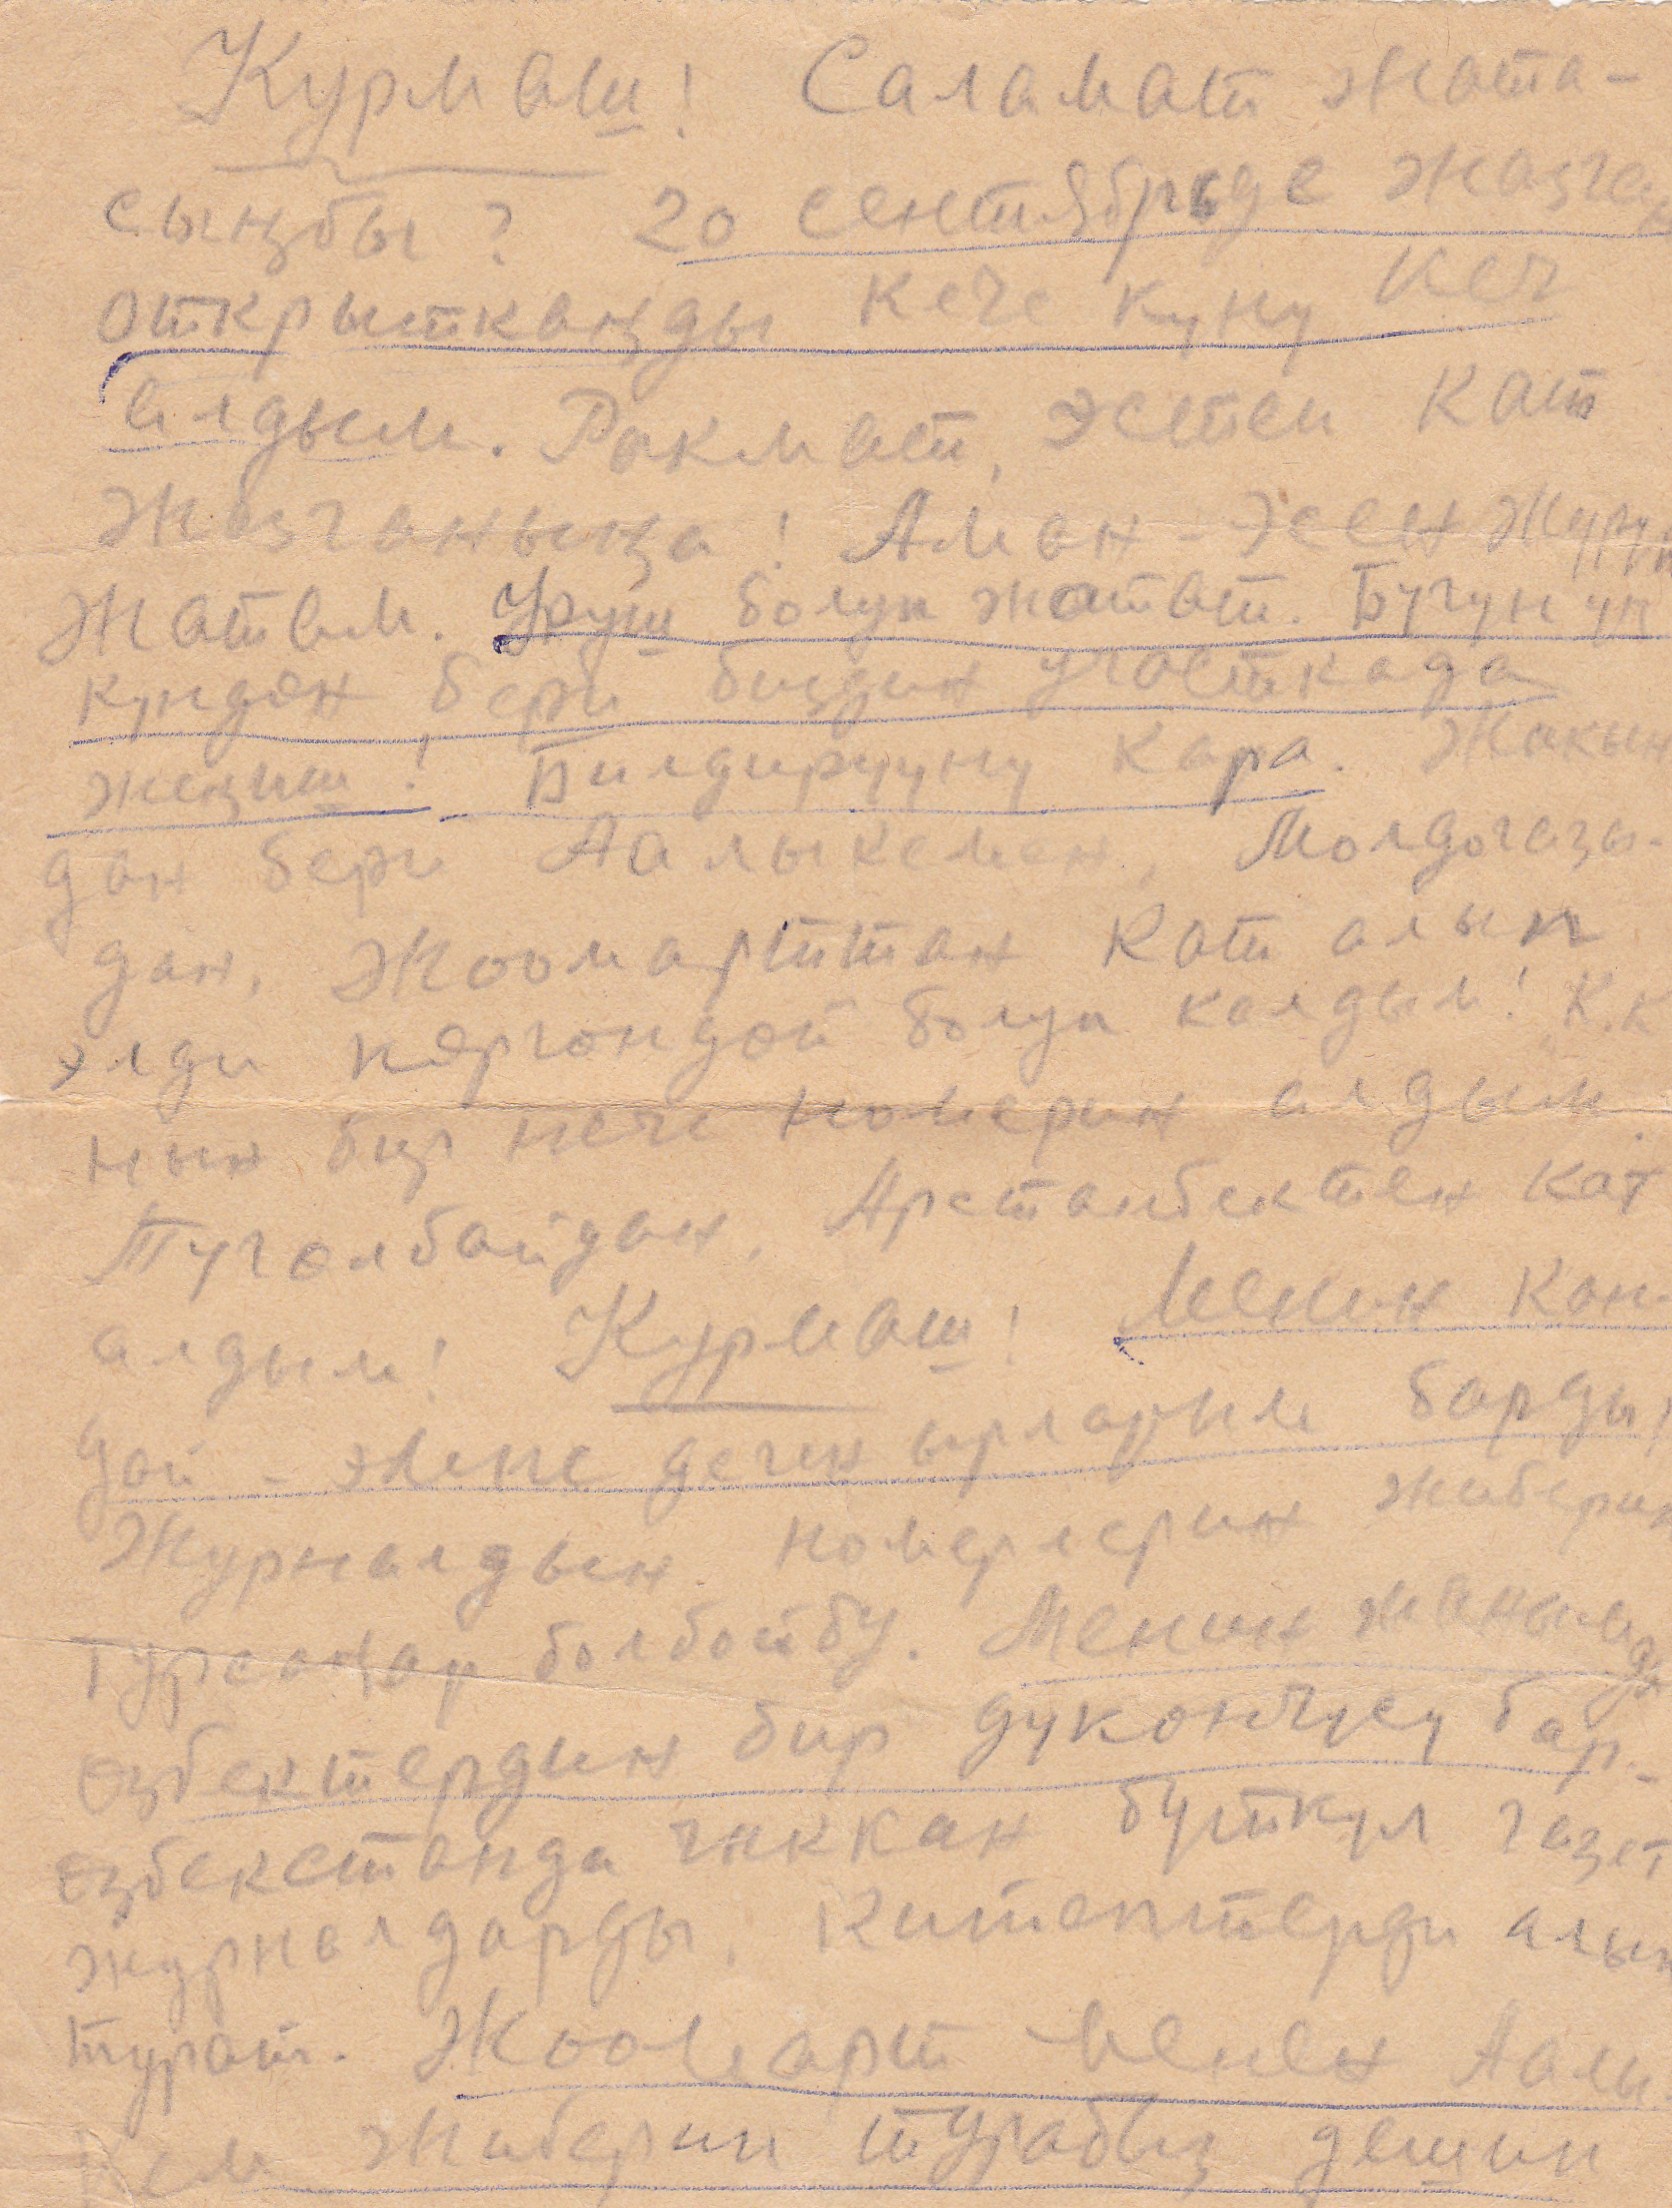 Курмаш! Саламат жата-
сыңбы? 20 сентябрьде жазган
открыткаңды кече күнү кеч
алдым. Рахмат, эстеп кат
жазганыңа! Аман-эсен жүрүп
жатам. Уруш болуп жатат. Бүгүн үч
күндөн бери биздин участкада
жеңиш! Билдирүүнү кара. Жакын
дан бери Аалыкемен, Молдогазы-
дан, Жоомарттан кат алып
элди көргөндөй болуп калдым! К.К
нын бир нече номерин алдым.
Түгөлбайдан, Арстанбектен кат
алдым! Курмаш! Менин кан-
дай-эмне деген ырларым барды!
Журналдын номерлерин жиберип
турсаңар болбойбу. Менин жанымда
өзбектердин бир дүкөнчүсү бар-
өзбекстанда чыккан бүткүл газет
журналдарды, китептерди алып
турат. Жоомарт менен Аалы-
кем жиберип турабыз дешип